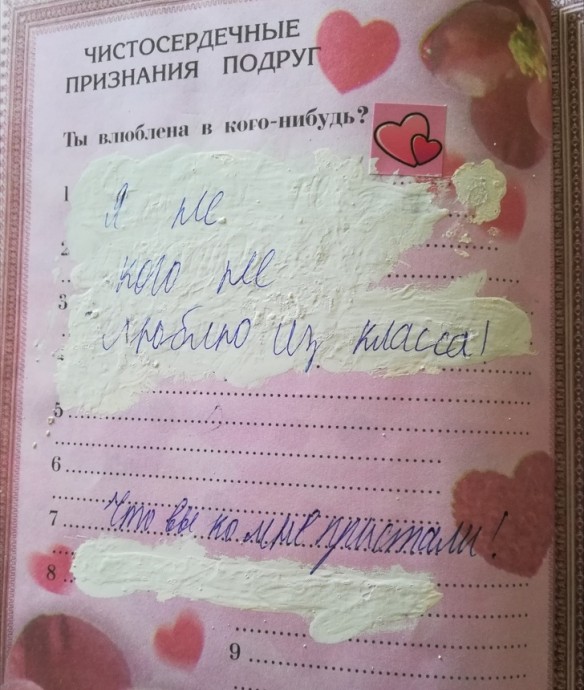 ЧИСТОСЕРДЕЧНЫЕ
ПРИЗНАНИЯ ПОДРУГ
Ты влюблена в кого-нибудь?
1
Я не
2
кого не
3
люблю из класса!
5
6
7 Что вы ко мне пристали!
8
9